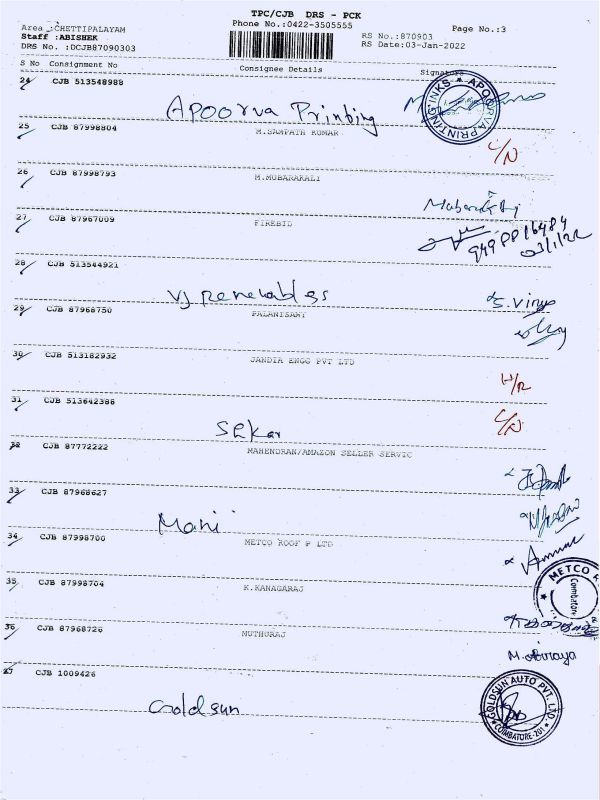 TPC/CJB DRS - PCK
Area :CHETTIPALAYAM Phone No.:0422-3505555 Page No.:3
Staff :ABISHEK RS No.:870903
DRS No. :DCJB87090303 RS Date:03-Jan-2022
S No Consignment No Consignee Details Signature
24 CJB 513548988
Apoorva Printing
APOORVA PRINTING INKS
25 CJB 87998804
M.SAMPATH KUMAR
26 CJB 87998793
M.MUBARAKALI
27 CJB 87967009
FIREBID
9498816484
03/1/22
28 CJB 513544921
VJ Renewables
29 CJB 87968750
PALANISAMY
30 CJB 513182932
JANDIA ENGG PVT LTD
31 CJB 513642386
Sekar
32 CJB 87772222
MAHENDRAN/AMAZON SELLER SERVIC
33 CJB 87968627
Mani
34 CJB 87998700
METCO ROOF P LTD
METCO R
Coimbatore
35 CJB 87998704
K.KANAGARAJ
36 CJB 87968726
MUTHURAJ
37 CJB 1009426
Goldsun
GOLDSUN AUTO PVT. LTD.
COIMBATORE-201